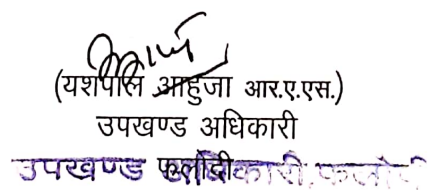 (यशपाल आहुजा आर.ए.एस.)
उपखण्ड अधिकारी
फलौदी
उपखण्ड अधिकारी, फलोदी